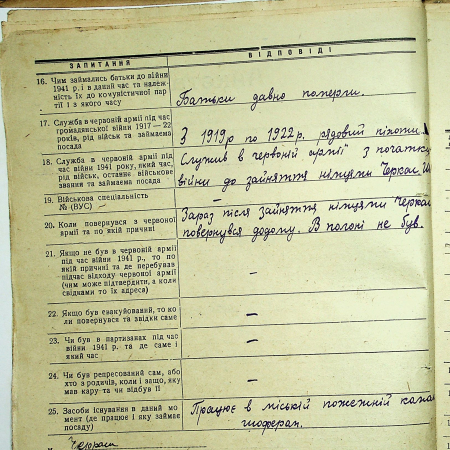 ЗАПИТАННЯ
ВІДПОВІДІ
16. Чим займались батьки до війни
1941 р. і в даний час та належ-
ність їх до комуністичної пар-
тії і з якого часу
Батьки давно померли.
17. Служба в червоній армії під час
громадянської війни 1917—22
років, рід військ та займаема
посада
З 1919р по 1922р. рядовий піхоти.
18. Служба в червоній армії під
час війни 1941 року, який час,
рід військ, останнє військове
звання та займаема посада
Служив в червоній армії з початку
війни до зайняття німцями Черкас.
19. Військова спеціальність
№ (ВУС)
—
20. Коли повернувся з червоної
армії та по якій причині
Зараз після зайняття німцями Черкас
повернувся додому. В полоні не був.
21. Якщо не був в червоній армії
під час війни 1941 р., то по
якій причині та де перебував
підчас відходу червоної армії
(чим може підтвердити, а коли
свідками то їх адреса)
—
22. Якщо був евакуйований, то ко
ли повернувся та звідки саме
—
23. Чи був в партизанах під час
війни 1941 р. та де саме і
який час
—
24. Чи був репресований сам, або
хто з родичів, коли і защо, яку
мав кару та чи відбув її
—
25. Засоби існування в даний мо
мент (де працює і яку займає
посаду)
Працює в міській пожежній
шофером.